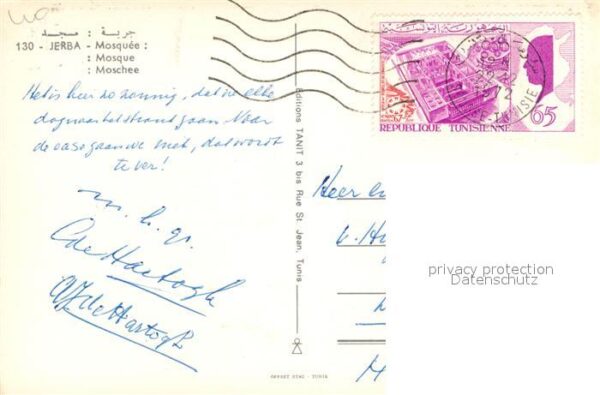 جربة : مسجد
130 - JERBA - Mosquée :
: Mosque
: Moschee
Het is hier zo zonnig, dat we elke
dag naar het strand gaan. Naar
de oase gaan we niet, dat wordt
te ver!
m. h. gr.
C de Hartogh
de Hartogh
Editions TANIT 3 bis Rue St Jean, Tunis
REPUBLIQUE TUNISIENNE
65
Heer en
privacy protection
Datenschutz